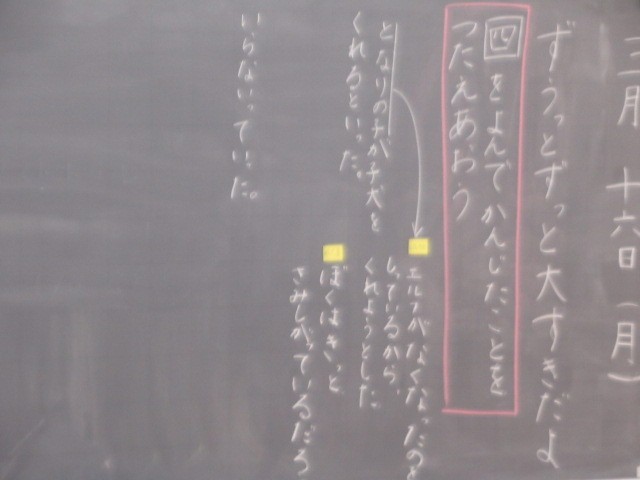 三月 十六日(月)
ずうっとずっと大すきだよ
四をよんでかんじたことを
つたえあおう
となりの子が子犬を
くれるといった。
いらないっていった。
エルフがなくなったのを
しっているから、
くれようとした。
ぼくはきっと
さみしがっているだろ